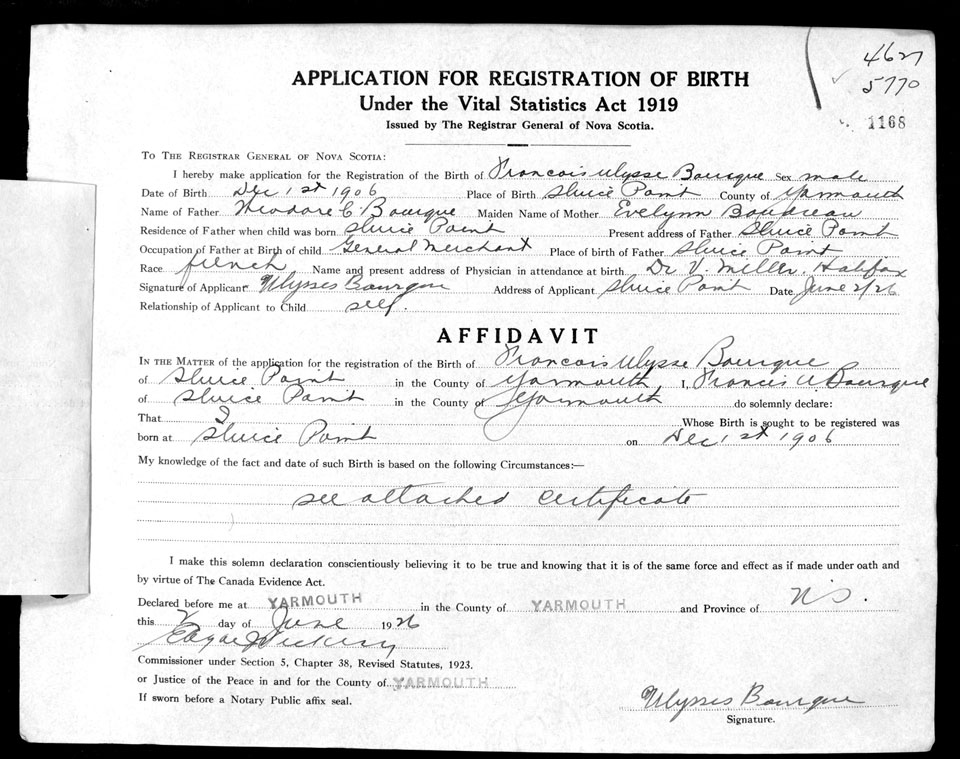 4627
5770
1168
APPLICATION FOR REGISTRATION OF BIRTH
Under the Vital Statistics Act 1919
Issued by The Registrar General of Nova Scotia.
TO THE REGISTRAR GENERAL OF NOVA SCOTIA:
I hereby make application for the Registration of the Birth of Francois Ulysse Bourque Sex male
Date of Birth Dec 1st 1906 Place of Birth Sluice Point County of Yarmouth
Name of Father Theodore C. Bourque Maiden Name of Mother Evelynn Boudreau
Residence of Father when child was born Sluice Point Present address of Father Sluice Point
Occupation of Father at Birth of child General Merchant Place of birth of Father Sluice Point
Race french Name and present address of Physician in attendance at birth. Dr V. Miller. Halifax
Signature of Applicant Ulysses Bourque Address of Applicant Sluice Point Date June 2/26
Relationship of Applicant to Child self.
AFFIDAVIT
IN THE MATTER of the application for the registration of the Birth of Francois Ulysse Bourque
of Sluice Point in the County of Yarmouth, I, Francis U. Bourque
of Sluice Point in the County of Yarmouth do solemnly declare:
That I Whose Birth is sought to be registered was
born at Sluice Point on Dec 1st 1906
My knowledge of the fact and date of such Birth is based on the following Circumstances:—
see attached certificate
I make this solemn declaration conscientiously believing it to be true and knowing that it is of the same force and effect as if made under oath and
by virtue of The Canada Evidence Act.
Declared before me at YARMOUTH in the County of YARMOUTH and Province of N.S.
this 2 day of June 1926
Commissioner under Section 5, Chapter 38, Revised Statutes, 1923.
or Justice of the Peace in and for the County of YARMOUTH
If sworn before a Notary Public affix seal.
Ulysses Bourque
Signature.